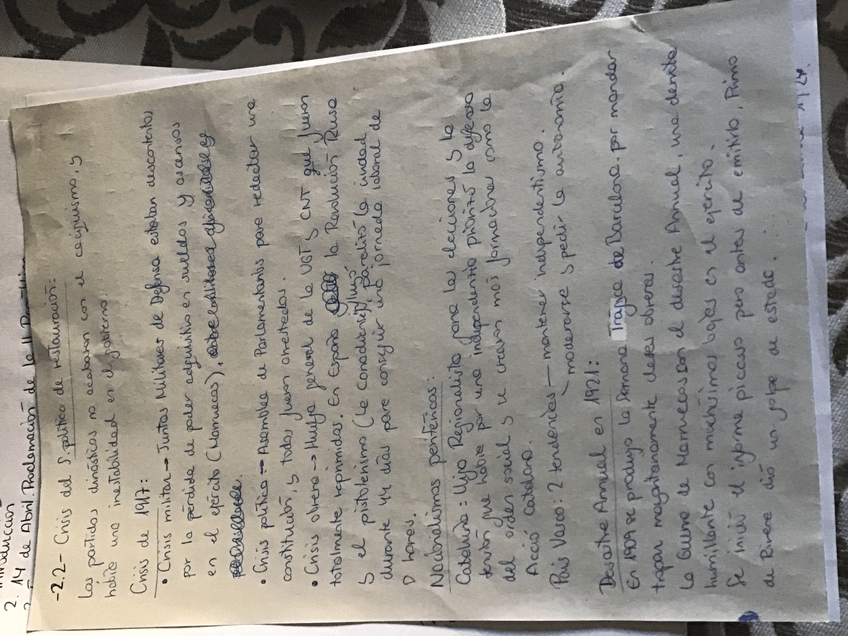 2. 14 de Abril. Proclamación de la II
-2.2- Crisis del S. político de restauración:
Los partidos dinásticos no acabaron con el caciquismo, y
había una inestabilidad en el gobierno.
Crisis de 1917:
• Crisis militar → Juntas Militares de Defensa estaban descontentos
por la pérdida de poder adquisitivo en sueldos y ascensos
en el ejército (Marruecos).
• Crisis política → Asamblea de Parlamentarios para redactar una
constitución, y todos fueron arrestados.
• Crisis obrera → Huelga general de la UGT y CNT que fueron
totalmente reprimidas. En España la Revolución Rusa
y el pistolerismo (La Canadiense) paralizó la ciudad
durante 44 días para conseguir una jornada laboral de
8 horas.
Nacionalismos periféricos:
Cataluña: Lliga Regionalista gana las elecciones y la
tensión que había por una independentia priorizó la defensa
del orden social y se crearon más formaciones como la
Acció Catalana.
País Vasco: 2 tendencias — mantener independentismo.
moderarse y pedir la autonomía.
Desastre Annual en 1921:
En 1909 se produjo la Semana Trágica de Barcelona por mandar
tropas mayoritariamente clases obreras.
La Guerra de Marruecos con el desastre Annual, una derrota
humillante con muchísimas bajas en el ejército.
Se inició el informe picasso pero antes de emitirlo Primo
de Rivera dió un golpe de estado.